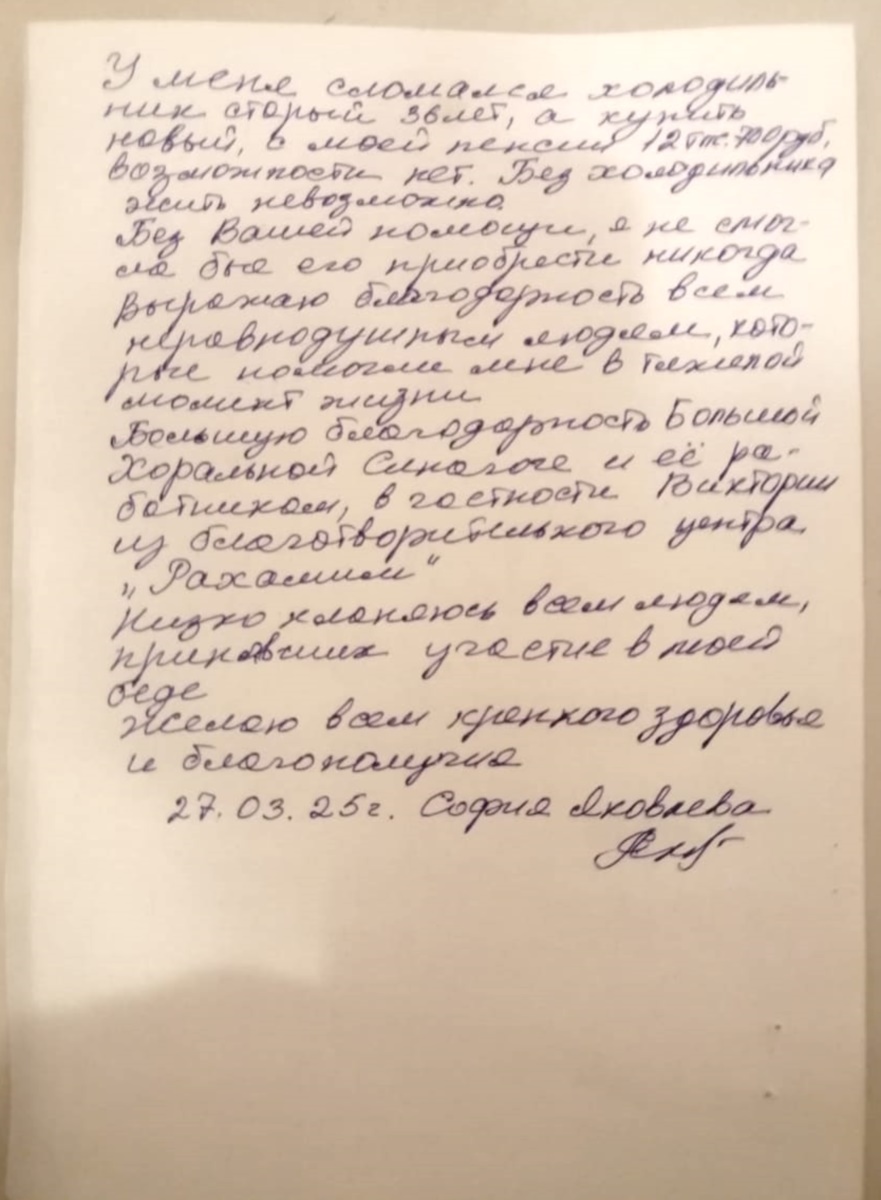 У меня сломался холодиль-
ник старый 36 лет, а купить
новый, с моей пенсии 12 тт. 700 руб,
возможности нет. Без холодильника
жить невозможно.
Без Вашей помощи, я не смог-
ла бы его приобрести никогда
Выражаю благодарность всем
неравнодушным людям, кото-
рые помогли мне в тяжелой
момент жизни
Большую благодарность Большой
Хоральной Синагоге и её ра-
ботникам, в частности Виктории
из благотворительного центра
„Рахамим“
Низко кланяюсь всем людям,
принявших участие в моей
беде
Желаю всем крепкого здоровья
и благополучия
27.03.25г. София Яковлева